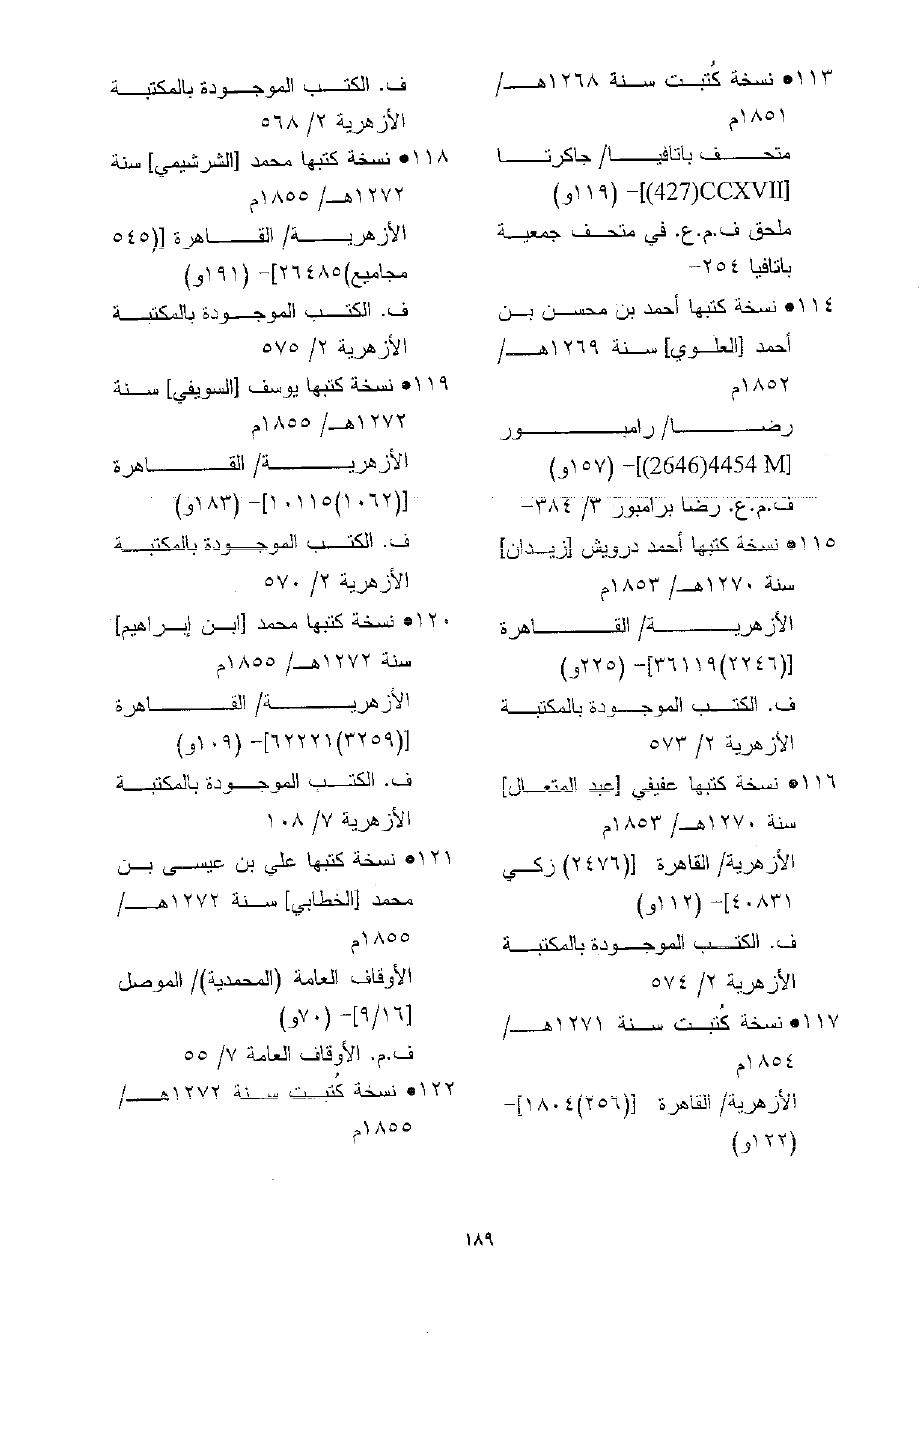 ١١٣• نسخة كُتبت سنة ١٢٦٨هـ/
١٨٥١م
متحف باتافيا/ جاكرتا
[(427)CCXVII]- (١١٩و)
ملحق ف.م.ع. في متحف جمعية
باتافيا ٢٥٤-
١١٤• نسخة كتبها أحمد بن محسن بن
أحمد [العلوي] سنة ١٢٦٩هـ/
١٨٥٢م
رضا/ رامبور
[(2646)4454 M]- (١٥٧و)
ف.م.ع. رضا برامبور ٣/ ٣٨٤-
١١٥• نسخة كتبها أحمد درويش [زيدان]
سنة ١٢٧٠هـ/ ١٨٥٣م
الأزهرية/ القاهرة
[(٢٢٤٦)٣٦١١٩]- (٢٢٥و)
ف. الكتب الموجودة بالمكتبة
الأزهرية ٢/ ٥٧٣
١١٦• نسخة كتبها عفيفي [عبد المتعال]
سنة ١٢٧٠هـ/ ١٨٥٣م
الأزهرية/ القاهرة [(٢٤٧٦) زكي
٤٠٨٣١]- (١١٢و)
ف. الكتب الموجودة بالمكتبة
الأزهرية ٢/ ٥٧٤
١١٧• نسخة كُتبت سنة ١٢٧١هـ/
١٨٥٤م
الأزهرية/ القاهرة [(٢٥٦)١٨٠٤]-
(١٢٢و)
ف. الكتب الموجودة بالمكتبة
الأزهرية ٢/ ٥٦٨
١١٨• نسخة كتبها محمد [الشرشيمي] سنة
١٢٧٢هـ/ ١٨٥٥م
الأزهرية/ القاهرة [(٥٤٥
مجاميع)٢٦٤٨٥]- (١٩١و)
ف. الكتب الموجودة بالمكتبة
الأزهرية ٢/ ٥٧٥
١١٩• نسخة كتبها يوسف [السويفي] سنة
١٢٧٢هـ/ ١٨٥٥م
الأزهرية/ القاهرة
[(١٠٦٢)١٠١١٥]- (١٨٣و)
ف. الكتب الموجودة بالمكتبة
الأزهرية ٢/ ٥٧٠
١٢٠• نسخة كتبها محمد [ابن إبراهيم]
سنة ١٢٧٢هـ/ ١٨٥٥م
الأزهرية/ القاهرة
[(٣٢٥٩)٦٢٢٢١]- (١٠٩و)
ف. الكتب الموجودة بالمكتبة
الأزهرية ٧/ ١٠٨
١٢١• نسخة كتبها علي بن عيسى بن
محمد [الخطابي] سنة ١٢٧٢هـ/
١٨٥٥م
الأوقاف العامة (المحمدية)/ الموصل
[٩/١٦]- (٧٠و)
ف.م. الأوقاف العامة ٧/ ٥٥
١٢٢• نسخة كُتبت سنة ١٢٧٢هـ/
١٨٥٥م
١٨٩